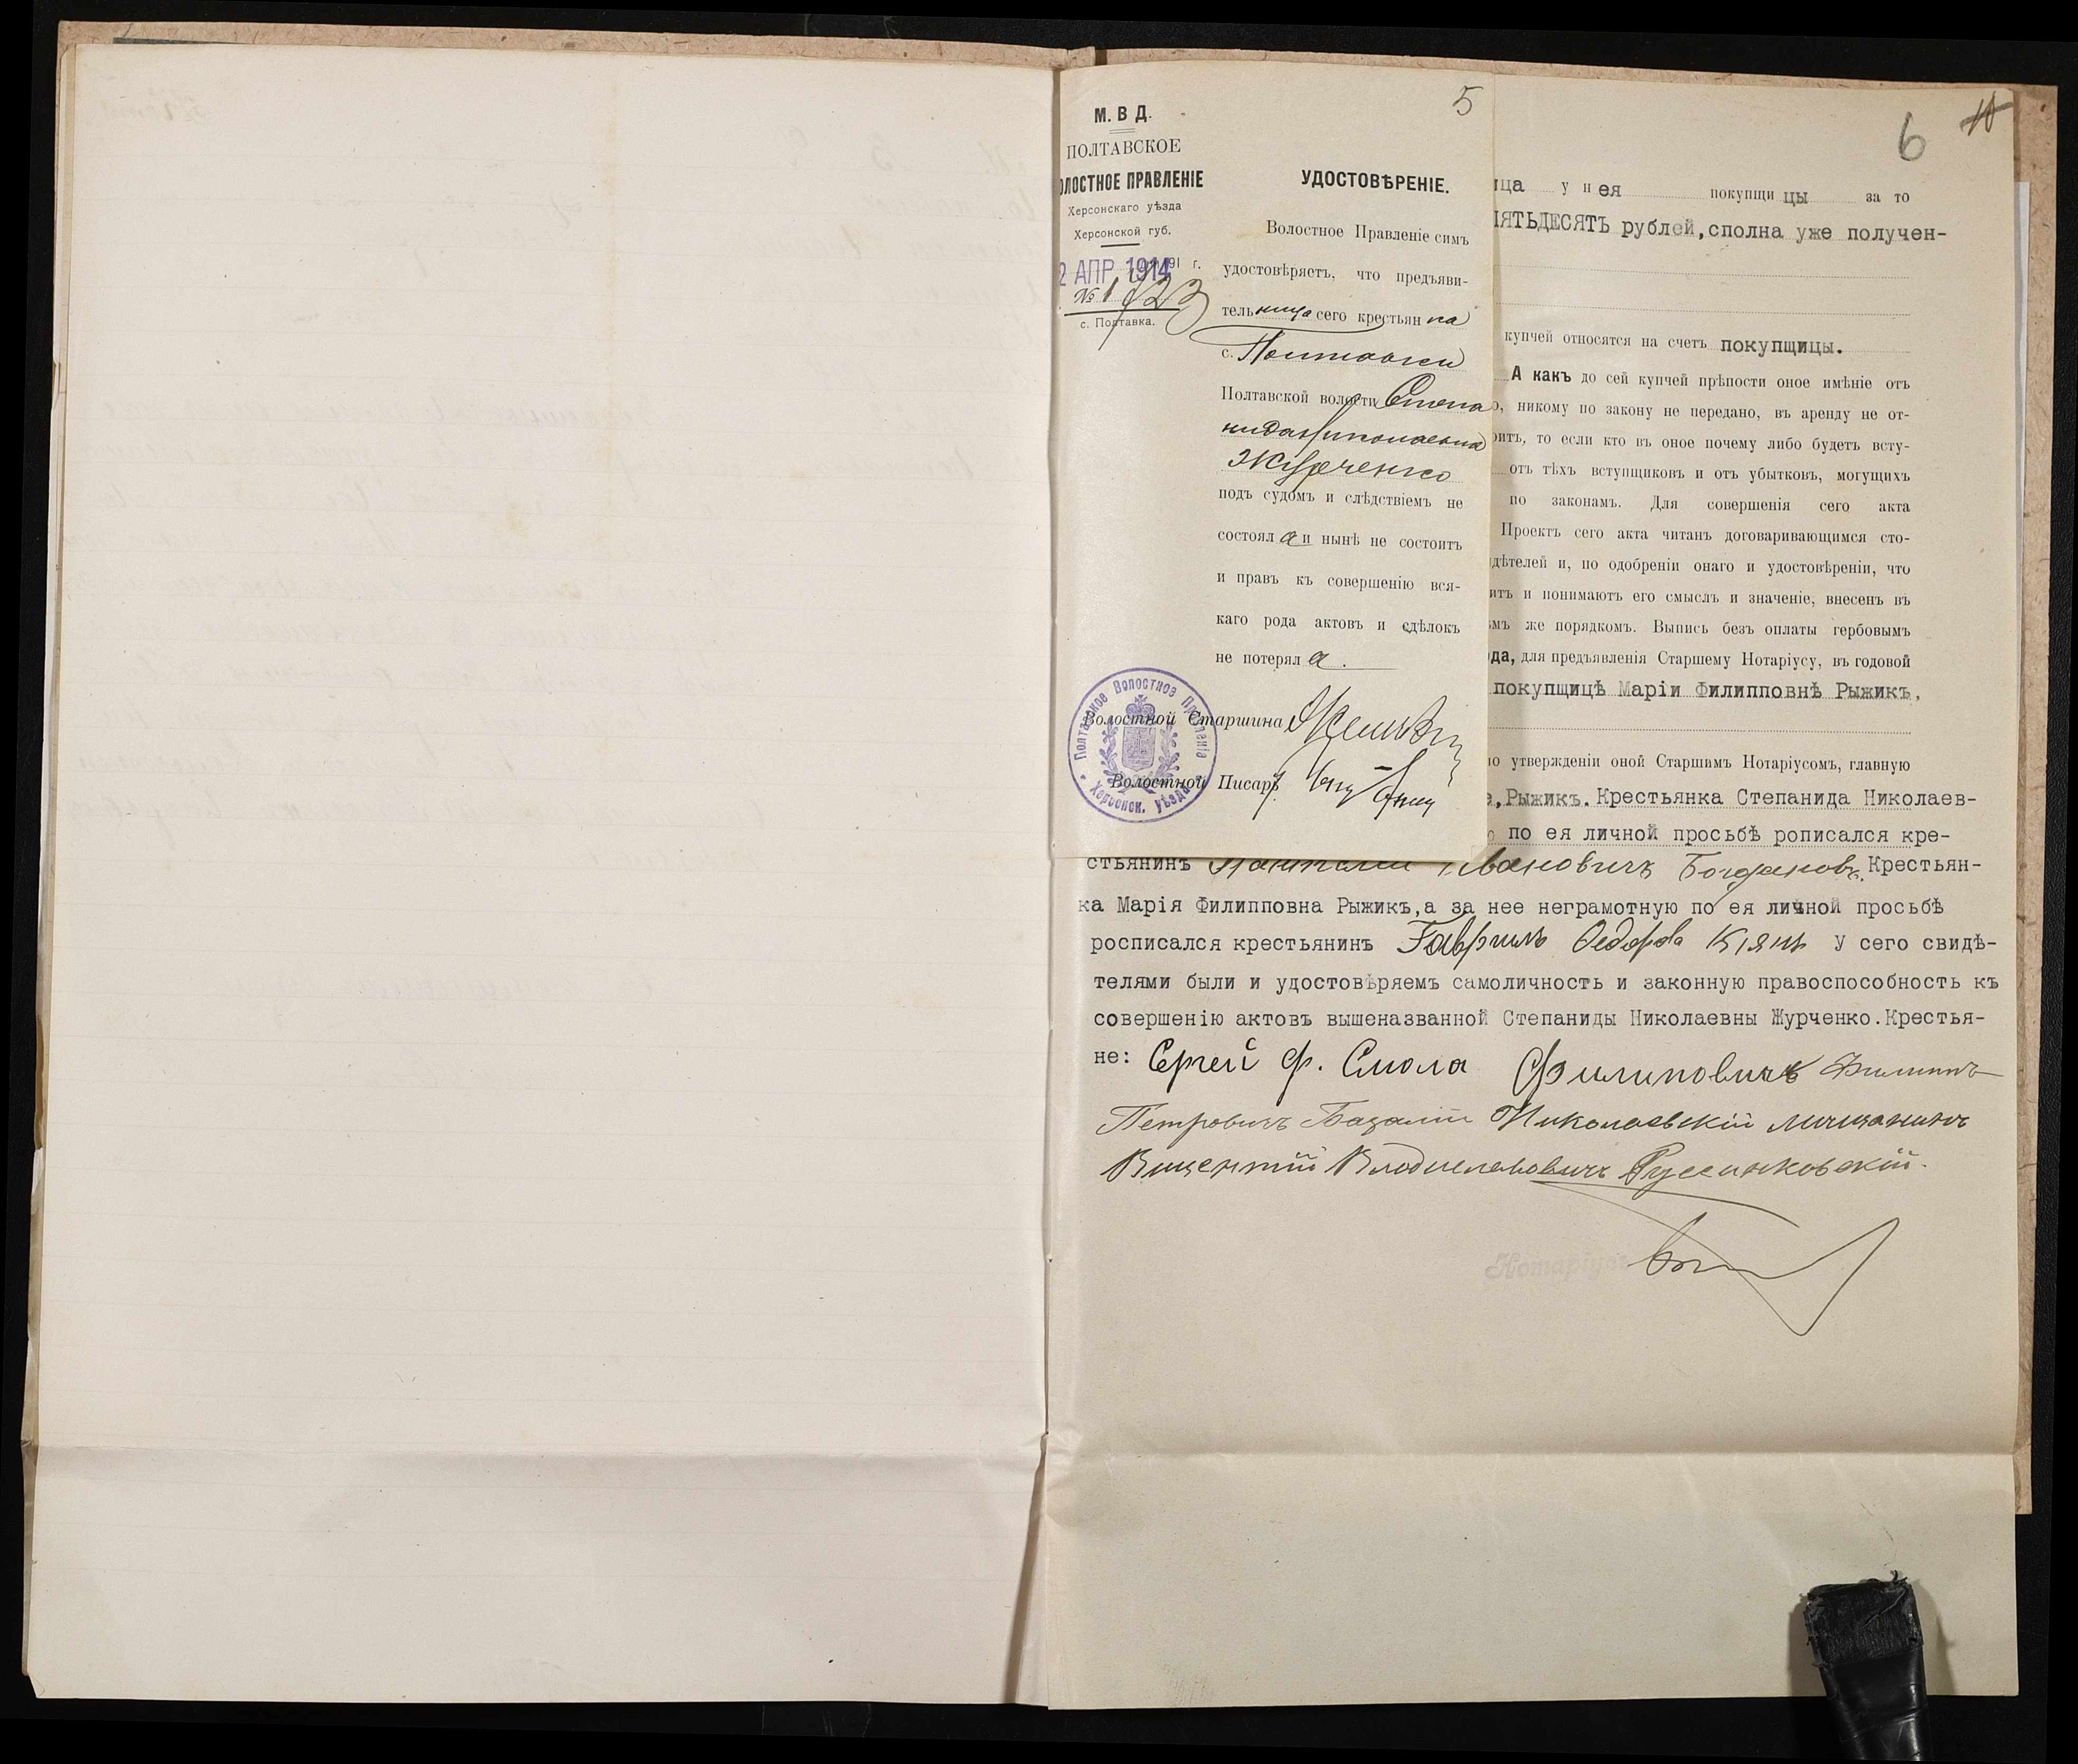 5
М. В Д.
ПОЛТАВСКОЕ
ОЛОСТНОЕ ПРАВЛЕНІЕ
Херсонскаго уѣзда
Херсонской губ.
2 АПР 1914 191 г.
№ 1823
с. Полтавка.
УДОСТОВѢРЕНІЕ.
Волостное Правленіе симъ
удостовѣряетъ, что предъяви-
тельница сего крестьянка
с. Полтавки
Полтавской волости Степа
нида Николаевна
Журченко
подъ судомъ и слѣдствіемъ не
состояла и нынѣ не состоитъ
и правъ къ совершенію вся-
каго рода актовъ и сдѣлокъ
не потеряла.
Волостной Старшина
Волостной Писарь
Полтавское Волостное Правленіе
Херсонск. уѣзда
6 10
ица у нея покупщицы за то
ПЯТЬДЕСЯТЪ рублей,сполна уже получен-
купчей относятся на счетъ покупщицы.
А какъ до сей купчей крѣпости оное имѣніе отъ
о, никому по закону не передано, въ аренду не от-
оитъ, то если кто въ оное почему либо будетъ всту-
отъ тѣхъ вступщиковъ и отъ убытковъ, могущихъ
по законамъ. Для совершенія сего акта
Проектъ сего акта читанъ договаривающимся сто-
дѣтелей и, по одобреніи онаго и удостовѣреніи, что
итъ и понимаютъ его смыслъ и значеніе, внесенъ въ
ѣмъ же порядкомъ. Выпись безъ оплаты гербовымъ
да, для предъявленія Старшему Нотаріусу, въ годовой
покупщицѣ Маріи Филипповнѣ Рыжикъ,
по утвержденіи оной Старшимъ Нотаріусомъ, главную
а,Рыжикъ.Крестьянка Степанида Николаев-
ю по ея личной просьбѣ рописался кре-
стьянинъ Пантелей Ивановичъ Богдановъ.Крестьян-
ка Марія Филипповна Рыжикъ,а за нее неграмотную по ея личной просьбѣ
росписался крестьянинъ Гавриилъ Федорова Кіянъ У сего свидѣ-
телями были и удостовѣряемъ самоличность и законную правоспособность къ
совершенію актовъ вышеназванной Степаниды Николаевны Журченко.Крестья-
не: Сергей Ф. Смола Филиповичъ Филиппъ
Петровичъ Базалій Николаевскій мѣщанинъ
Вицентій Владиславовичъ Руссинковскій.
Нотаріусъ